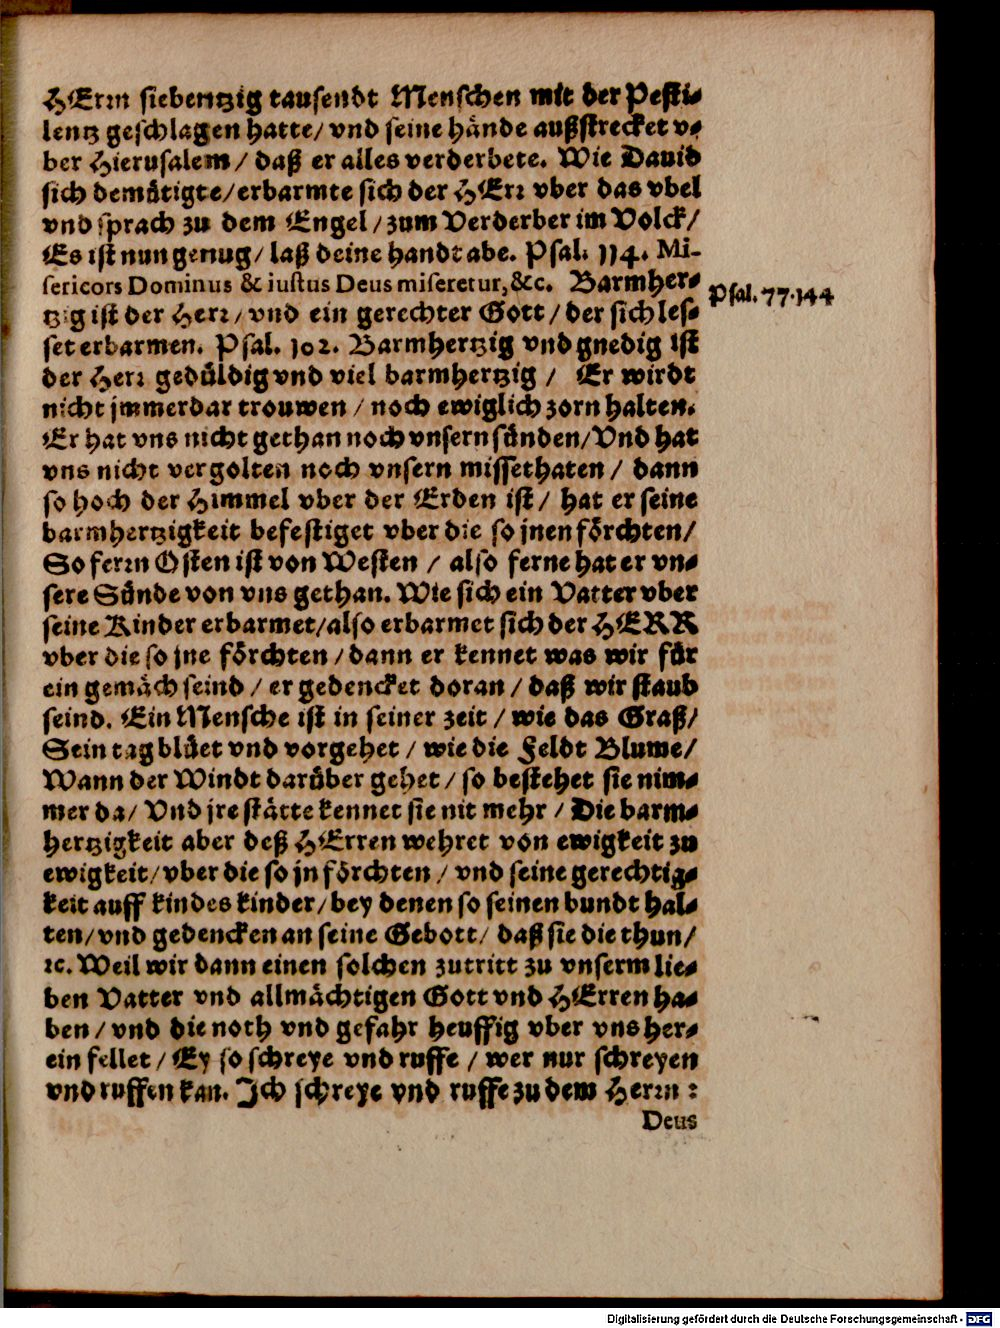 HErꝛn siebentzig tausendt Menschen mit der Pesti-
lentz geschlagen hatte/ vnd seine hände außstrecket v-
ber Hierusalem/ daß er alles verderbete. Wie Dauid
sich demůtigte/ erbarmte sich der HErꝛ vber das vbel
vnd sprach zu dem Engel/ zum Verderber im Volck/
Es ist nun genug/ laß deine handt abe. Psal. 114. Mi-
sericors Dominus & iustus Deus miseretur, &c. Barmher-
tzig ist der Herꝛ/ vnd ein gerechter Gott/ der sich les-
set erbarmen. Psal. 102. Barmhertzig vnd gnedig ist
der Herꝛ gedůldig vnd viel barmhertzig/ Er wirdt
nicht jmmerdar trouwen/ noch ewiglich zorn halten.
Er hat vns nicht gethan noch vnsern sünden/ Vnd hat
vns nicht vergolten noch vnsern missethaten/ dann
so hoch der Himmel vber der Erden ist/ hat er seine
barmhertzigkeit befestiget vber die so jnen förchten/
So ferꝛn Osten ist von Westen/ also ferne hat er vn-
sere Sünde von vns gethan. Wie sich ein Vatter vber
seine Kinder erbarmet/ also erbarmet sich der HERR
vber die so jne förchten/ dann er kennet was wir für
ein gemäch seind/ er gedencket doran/ daß wir staub
seind. Ein Mensche ist in seiner zeit/ wie das Graß/
Sein tag blůet vnd vorgehet/ wie die Feldt Blume/
Wann der Windt darůber gehet/ so bestehet sie nim-
mer da/ Vnd jre stätte kennet sie nit mehr/ Die barm-
hertzigkeit aber deß HErren wehret von ewigkeit zu
ewigkeit/ vber die so jn förchten/ vnd seine gerechtig-
keit auff kindes kinder/ bey denen so seinen bundt hal-
ten/ vnd gedencken an seine Gebott/ daß sie die thun/
ꝛc. Weil wir dann einen solchen zutritt zu vnserm lie-
ben Vatter vnd allmächtigen Gott vnd HErren ha-
ben/ vnd die noth vnd gefahr heuffig vber vns her-
ein fellet/ Ey so schreye vnd ruffe/ wer nur schreyen
vnd ruffen kan. Ich schreye vnd ruffe zu dem Herꝛn:
Deus
Psal. 77. 144
Digitalisierung gefördert durch die Deutsche Forschungsgemeinschaft - DFG